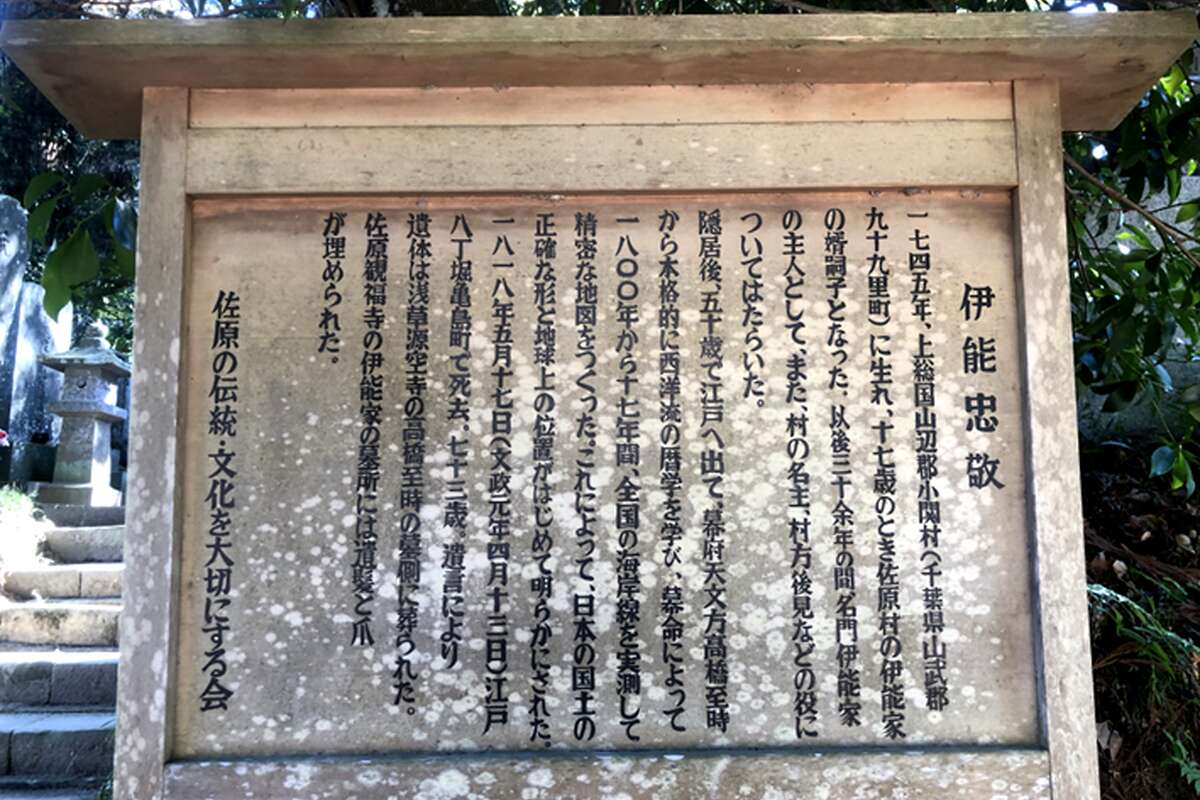 伊能忠敬
一七四五年、上総国山辺郡小関村(千葉県山武郡
九十九里町)に生れ、十七歳のとき佐原村の伊能家
の婿嗣子となった。以後三十余年の間名門伊能家
の主人として、また、村の名主、村方後見などの役に
ついてはたらいた。
隠居後、五十歳で江戸へ出て、幕府天文方高橋至時
から本格的に西洋流の暦学を学び、幕命によって
一八〇〇年から十七年間、全国の海岸線を実測して
精密な地図をつくった。これによって、日本の国土の
正確な形と地球上の位置がはじめて明らかにされた。
一八一八年五月十七日(文政元年四月十三日)江戸
八丁堀亀島町で死去。七十三歳。遺言により
遺体は浅草源空寺の高橋至時の墓側に葬られた。
佐原観福寺の伊能家の墓所には遺髪と爪
が埋められた。
佐原の伝統・文化を大切にする会